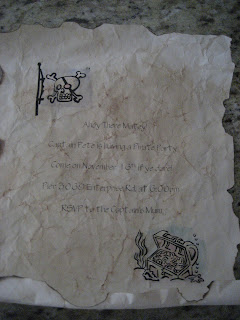 Ahoy There Matey
Capt'an Pete is having a Pirate Party
Come on November 15th if ye dare
Pier 50 Enterprise Rd. at 6:00pm
RSVP to the Capt'an's Mum